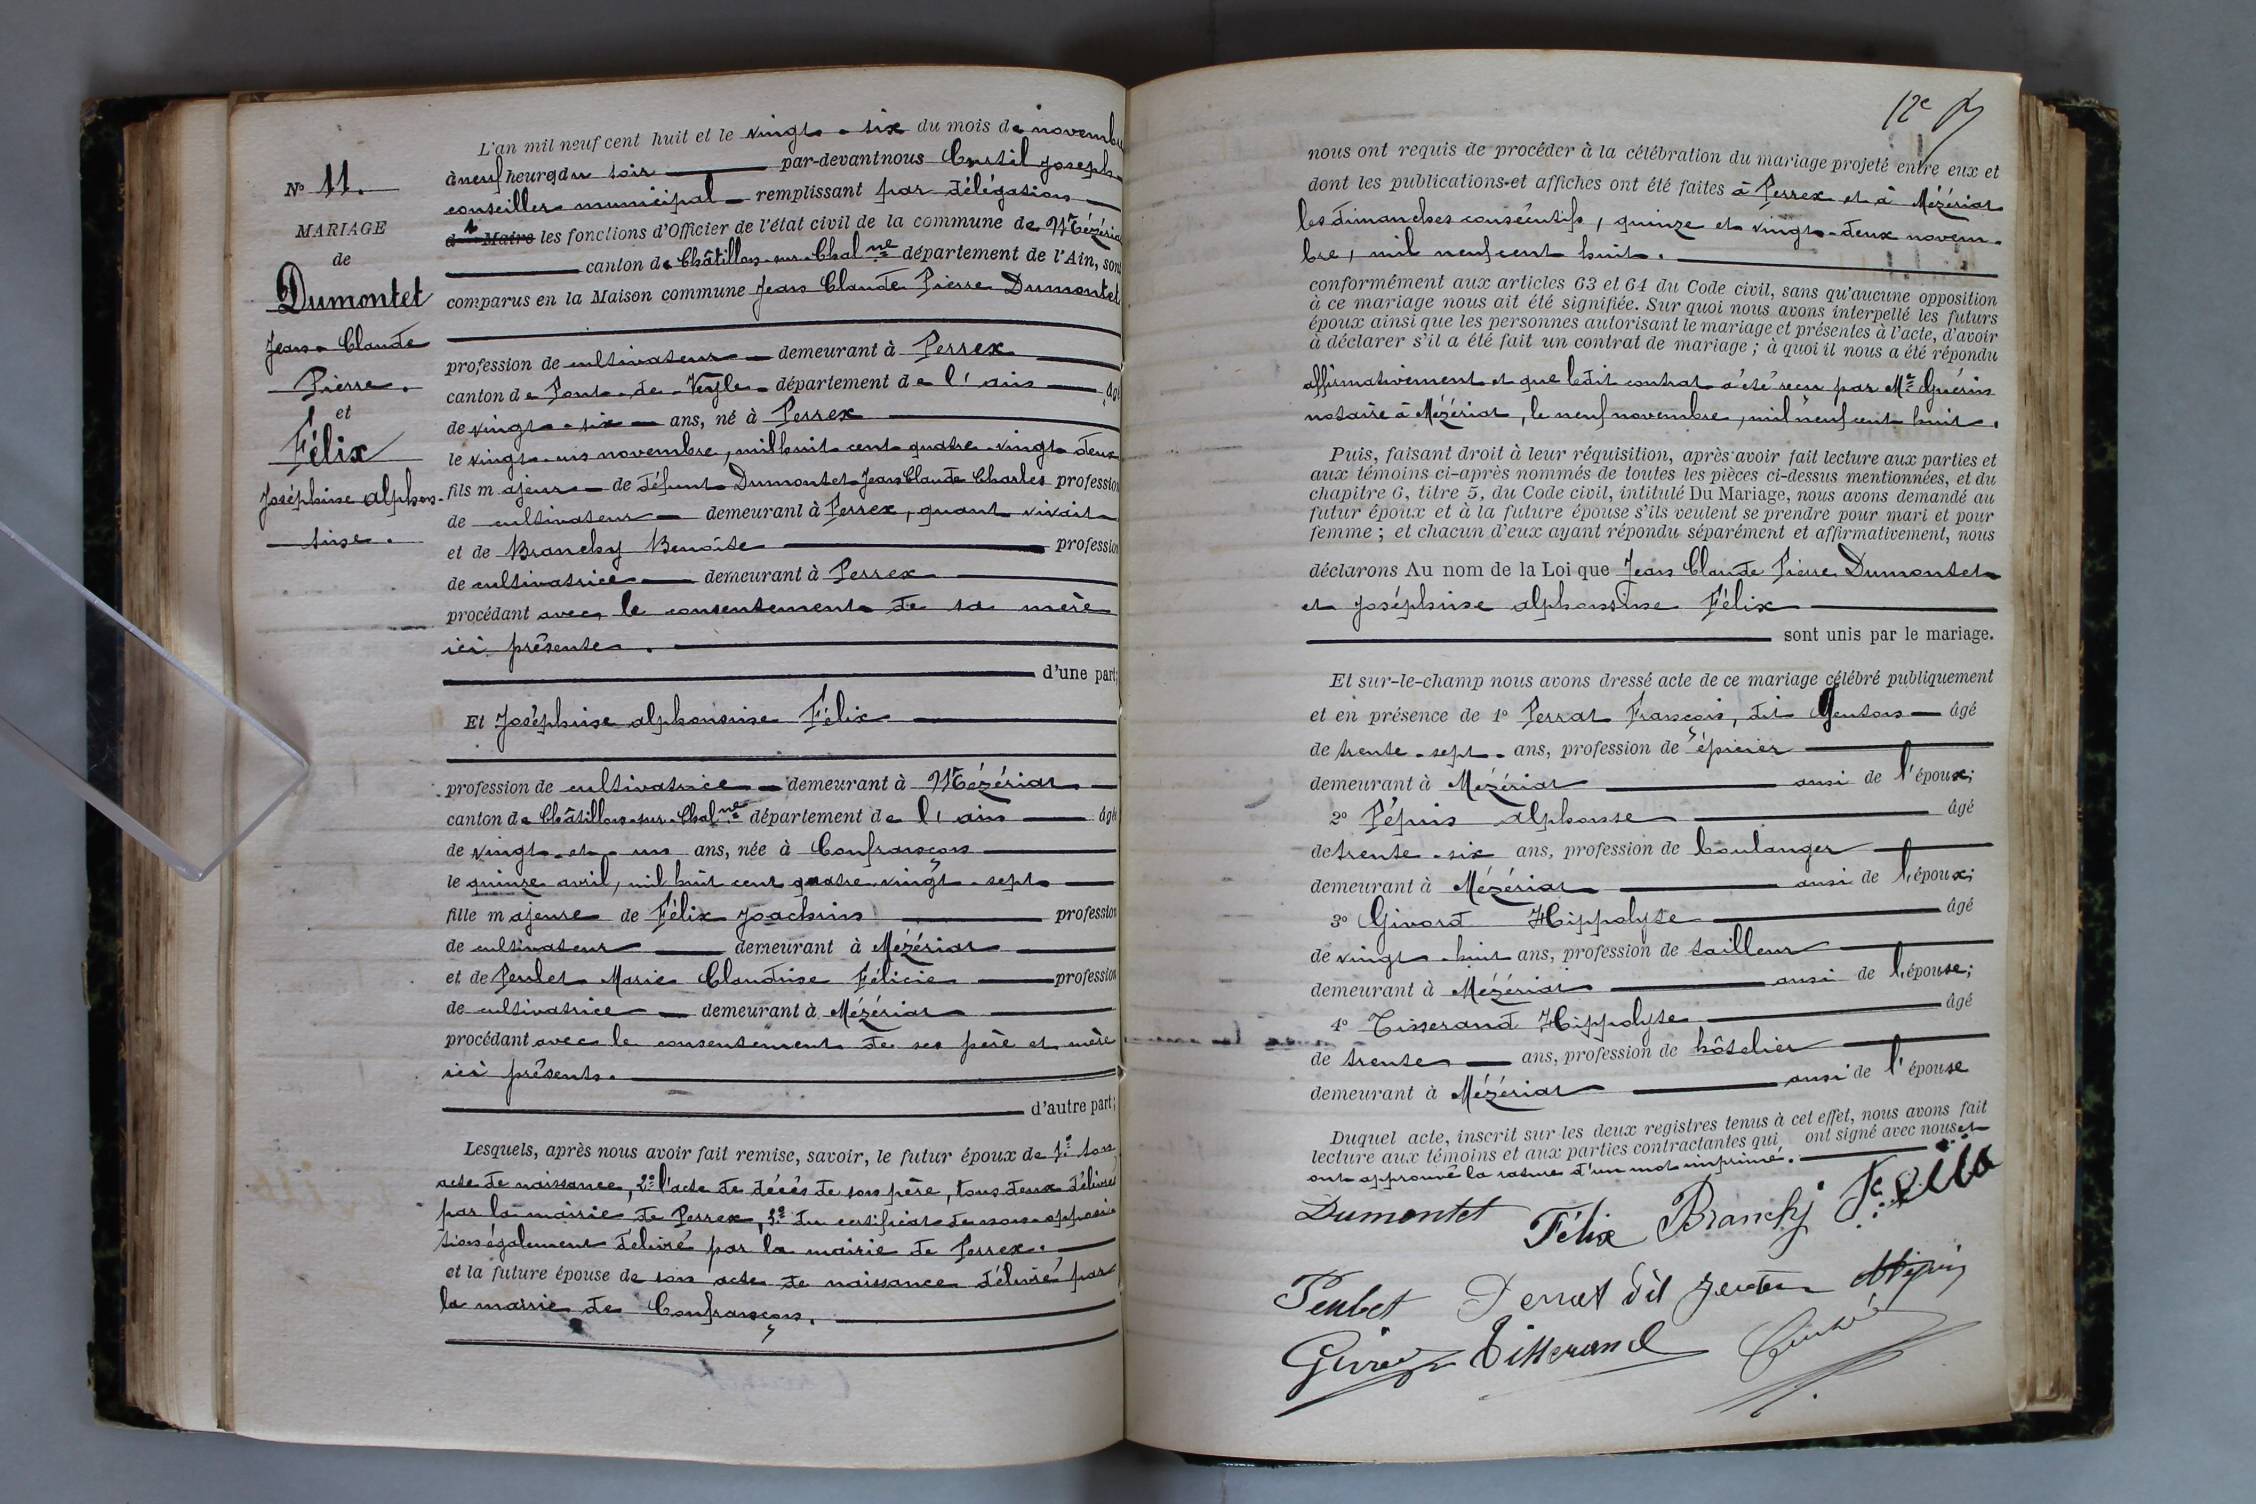 N° 11.
MARIAGE
de
Dumontet
Jean-Claude
Pierre.
et
Félix
Joséphine alphon-
sine.
L'an mil neuf cent huit et le vingt-six du mois de novembre
à neuf heures du soir par-devant nous Joseph
conseiller municipal remplissant par délégation
du Maire les fonctions d'Officier de l'état civil de la commune de Mézériat
canton de Châtillon-sur-Chal.ne département de l'Ain, sont
comparus en la Maison commune Jean Claude Pierre Dumontet
profession de cultivateur demeurant à Perrex
canton de Pont-de-Veyle département de l'ain âgé
de vingt-six ans, né à Perrex
le vingt-un novembre, mil huit cent quatre-vingt-deux
fils majeur de défunt Dumontet Jean Claude Charles profession
de cultivateur demeurant à Perrex, quant vivait
et de Branchy Benoîte profession
de cultivatrice demeurant à Perrex
procédant avec le consentement de sa mère
ici présente.
d'une part;
Et Joséphine alphonsine Félix
profession de cultivatrice demeurant à Mézériat
canton de Châtillon-sur-Chal.ne département de l'ain âgée
de vingt-et-un ans, née à Confrançon
le quinze avril, mil huit cent quatre-vingt-sept
fille majeure de Félix Joachim profession
de cultivateur demeurant à Mézériat
et de Peulet Marie Claudine Félicie profession
de cultivatrice demeurant à Mézériat
procédant avec le consentement de ses père et mère
ici présents.
d'autre part;
Lesquels, après nous avoir fait remise, savoir, le futur époux de 1° son
acte de naissance, 2° l'acte de décès de son père, tous deux délivrés
par la mairie de Perrex, 3° du certificat de non-opposi-
tion également délivré par la mairie de Perrex.
et la future épouse de son acte de naissance délivré par
la mairie de Confrançon.
12e
nous ont requis de procéder à la célébration du mariage projeté entre eux et
dont les publications et affiches ont été faites à Perrex et à Mézériat
les dimanches consécutifs, quinze et vingt-deux novem-
bre, mil neuf cent huit.
conformément aux articles 63 et 64 du Code civil, sans qu'aucune opposition
à ce mariage nous ait été signifiée. Sur quoi nous avons interpellé les futurs
époux ainsi que les personnes autorisant le mariage et présentes à l'acte, d'avoir
à déclarer s'il a été fait un contrat de mariage; à quoi il nous a été répondu
affirmativement et que ledit contrat a été reçu par Me Guérin
notaire à Mézériat, le neuf novembre, mil neuf cent huit.
Puis, faisant droit à leur réquisition, après avoir fait lecture aux parties et
aux témoins ci-après nommés de toutes les pièces ci-dessus mentionnées, et du
chapitre 6, titre 5, du Code civil, intitulé Du Mariage, nous avons demandé au
futur époux et à la future épouse s'ils veulent se prendre pour mari et pour
femme; et chacun d'eux ayant répondu séparément et affirmativement, nous
déclarons Au nom de la Loi que Jean Claude Pierre Dumontet
et Joséphine alphonsine Félix
sont unis par le mariage.
Et sur-le-champ nous avons dressé acte de ce mariage célébré publiquement
et en présence de 1° Perrat François, dit Genton âgé
de trente-sept ans, profession de épicier
demeurant à Mézériat ami de l'époux;
2° Pépin alphonse âgé
de trente-six ans, profession de boulanger
demeurant à Mézériat ami de l'époux;
3° Givord Hippolyte âgé
de vingt-huit ans, profession de tailleur
demeurant à Mézériat ami de l'épouse;
4° Tisserand Hippolyte âgé
de trente ans, profession de hôtelier
demeurant à Mézériat ami de l'épouse
Duquel acte, inscrit sur les deux registres tenus à cet effet, nous avons fait
lecture aux témoins et aux parties contractantes qui ont signé avec nous et
ont approuvé la rature d'un mot imprimé.
Dumontet Félix Branchy
Peulet Perrat dit genton Pépin
Givord Tisserand